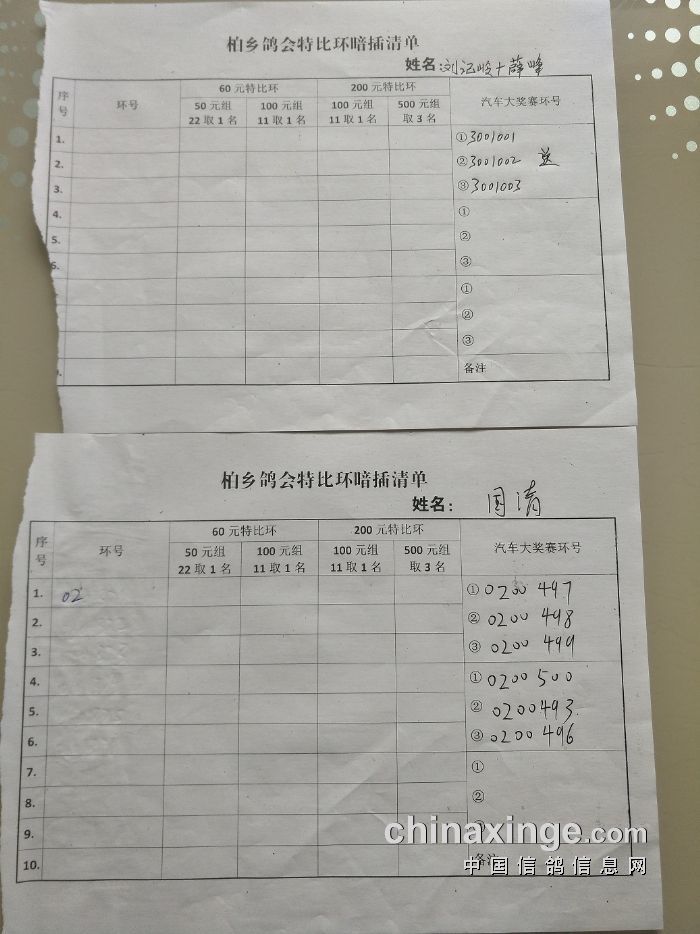 柏乡鸽会特比环暗插清单
姓名:刘记岭+薛峰
序号 环号 60元特比环 200元特比环 汽车大奖赛环号
50元组 22取1名 100元组 11取1名 100元组 11取1名 500元组 取3名
1. ①3001001
2. ②3001002 送
3. ③3001003
4. ①
5. ②
6. ③
①
②
③
备注
柏乡鸽会特比环暗插清单
姓名: 国清
序号 环号 60元特比环 200元特比环 汽车大奖赛环号
50元组 22取1名 100元组 11取1名 100元组 11取1名 500元组 取3名
1. 02 ①0200 497
2. ②0200 498
3. ③0200 499
4. ①0200 500
5. ②0200493
6. ③0200 496
7. ①
8. ②
9. ③
10. 备注
chinaxinge.com
中国信鸽信息网